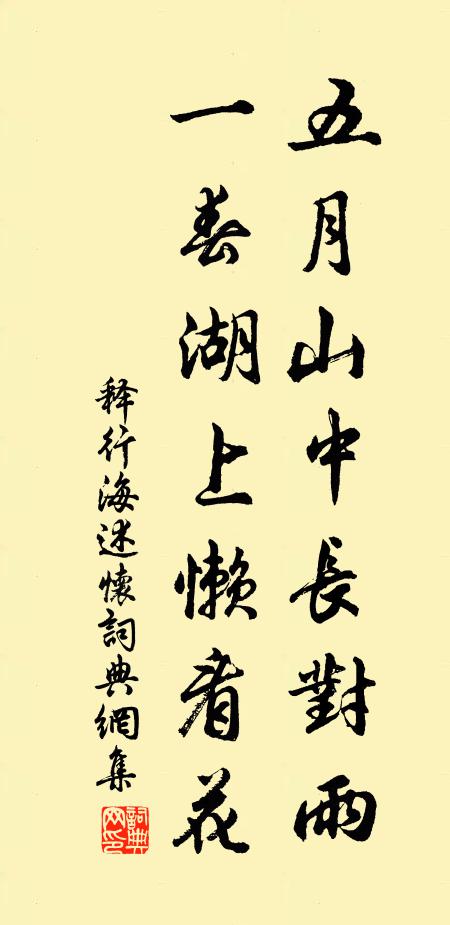 五月山中長對雨
一春湖上懶看花
释行海述懷詞典網集
詞典網印